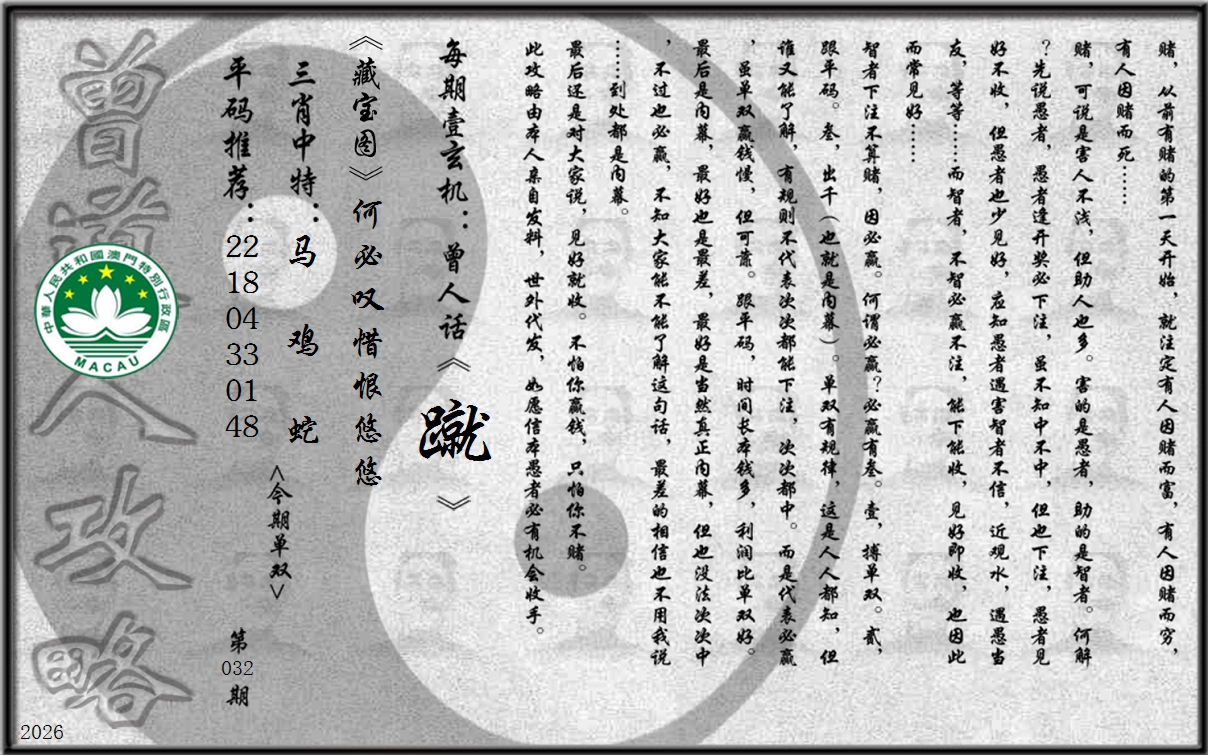 赌，从前有赌的第一天开始，就注定有人因赌而富，有人因赌而穷，
有人因赌而死……
赌，可说是害人不浅，但助人也多。害的是愚者，助的是智者。何解
？先说愚者，愚者逢开奖必下注，虽不知中不中，但也下注，愚者见
好不收，但愚者也少见好，应知愚者遇害智者不信，近观水，遇愚当
友，等等……而智者，不智必赢不注，能下能收，见好即收，也因此
而常见好……
智者下注不算赌，因必赢。何谓必赢？必赢有叁。壹，搏单双。贰，
跟平码。叁，出千（也就是内幕）。单双有规律，这是人人都知，但
谁又能了解，有规则不代表次次都能下注，次次都中。而是代表必赢
，虽单双赢钱慢，但可靠。跟平码，时间长本钱多，利润比单双好。
最后是内幕，最好也是最差，最好是当然真正内幕，但也没法次次中
，不过也必赢，不知大家能不能了解这句话，最差的相信也不用我说
……到处都是内幕。
最后还是对大家说，见好就收。不怕你赢钱，只怕你不赌。
此攻略由本人亲自发料，世外代发，如愿信本愚者必有机会收手。
每期壹玄机：曾人话《蹴》
《藏宝图》何必叹惜恨悠悠
三肖中特：马 鸡 蛇
<今期单双>
平码推荐：22 18 04 33 01 48
第032期
曾道人攻略
中華人民共和國澳門特別行政區
MACAU
2026